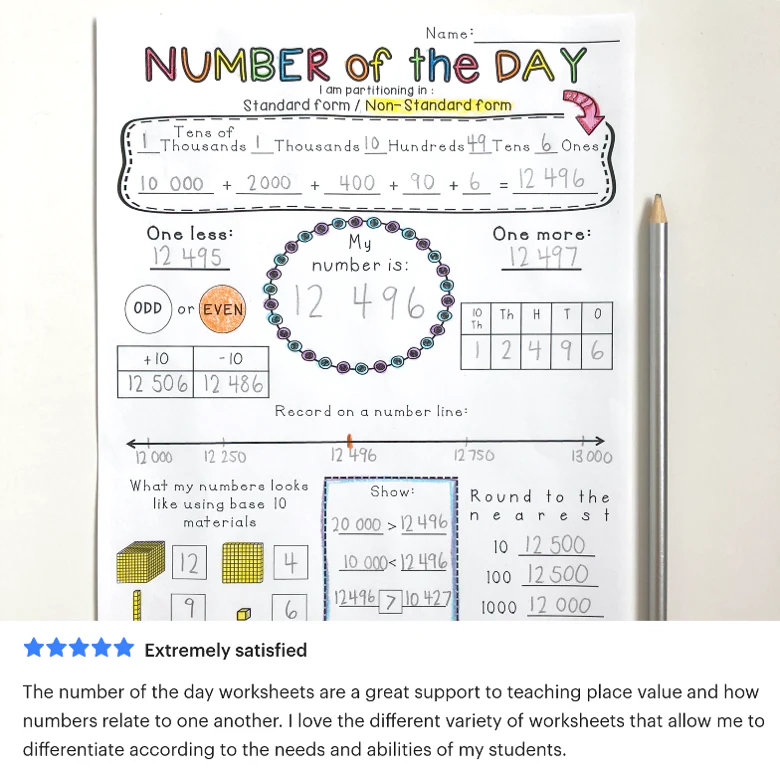 Name:
NUMBER of the DAY
I am partitioning in :
Standard form / Non-Standard form
1 Tens of Thousands 1 Thousands 10 Hundreds 49 Tens 6 Ones
10 000 + 2000 + 400 + 90 + 6 = 12 496
One less:
12 495
My
number is:
12 496
One more:
12 497
ODD or EVEN
10 Th Th H T O
1 2 4 9 6
+10 -10
12 506 12 486
Record on a number line:
12 000 12 250 12 496 12 750 13 000
What my numbers looks
like using base 10
materials
12 4
9 6
Show:
20 000 > 12 496
10 000 < 12 496
12496 > 10 427
Round to the
nearest
10 12 500
100 12 500
1000 12 000
Extremely satisfied
The number of the day worksheets are a great support to teaching place value and how
numbers relate to one another. I love the different variety of worksheets that allow me to
differentiate according to the needs and abilities of my students.